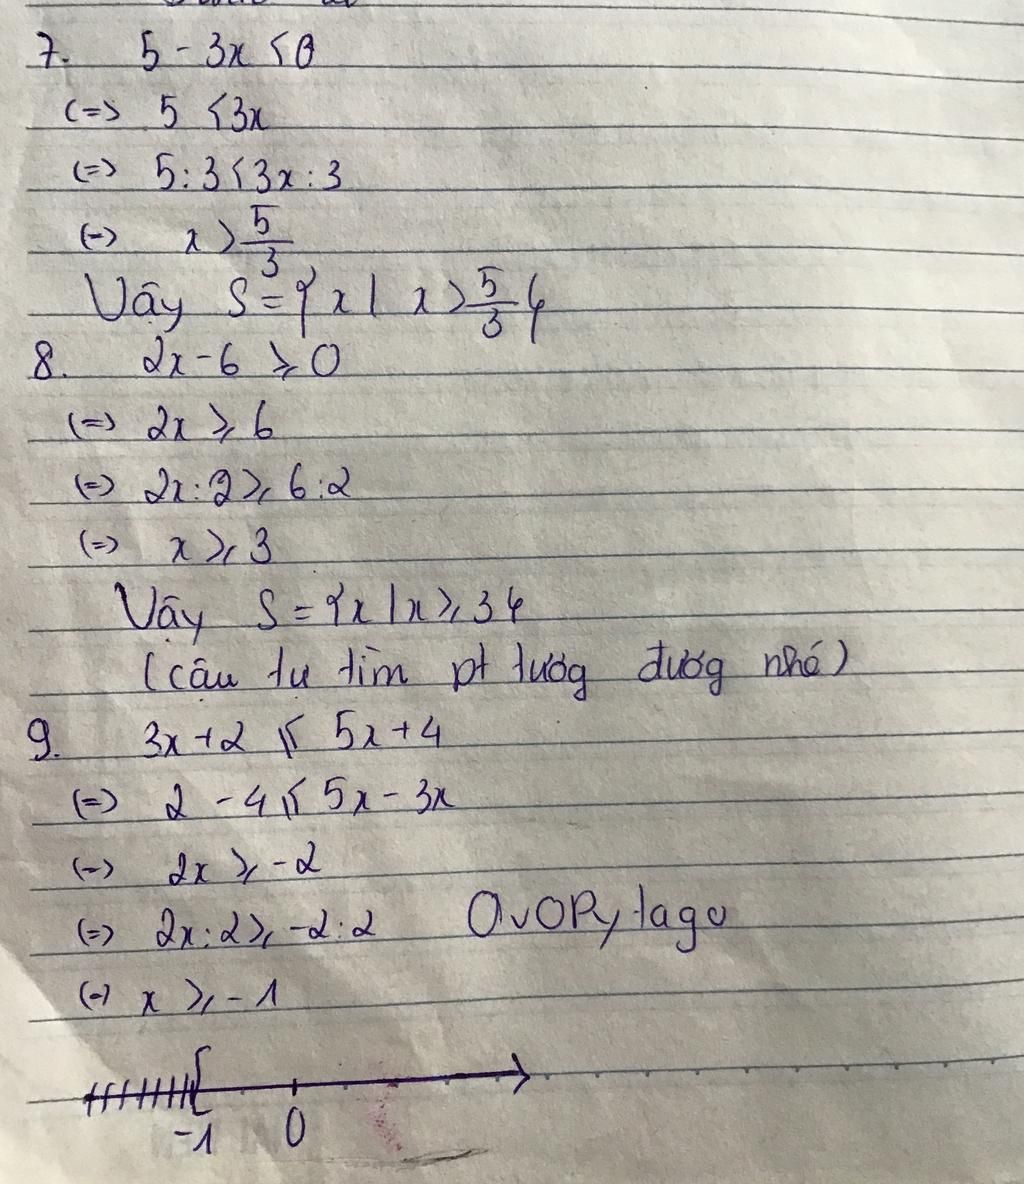 7. 5 - 3x < 0
<=> 5 < 3x
<=> 5 : 3 < 3x : 3
<-> x > 5/3
Vậy S = { x | x > 5/3 }
8. 2x - 6 ≥ 0
<=> 2x ≥ 6
<=> 2x : 2 ≥ 6 : 2
<=> x ≥ 3
Vậy S = { x | x ≥ 3 }
(cậu tự tìm pt tươg đươg nhé)
9. 3x + 2 ≤ 5x + 4
<=> 2 - 4 ≤ 5x - 3x
<-> 2x ≥ -2
<=> 2x : 2 ≥ -2 : 2 OvOPytago
<-> x ≥ -1
[
-1 0